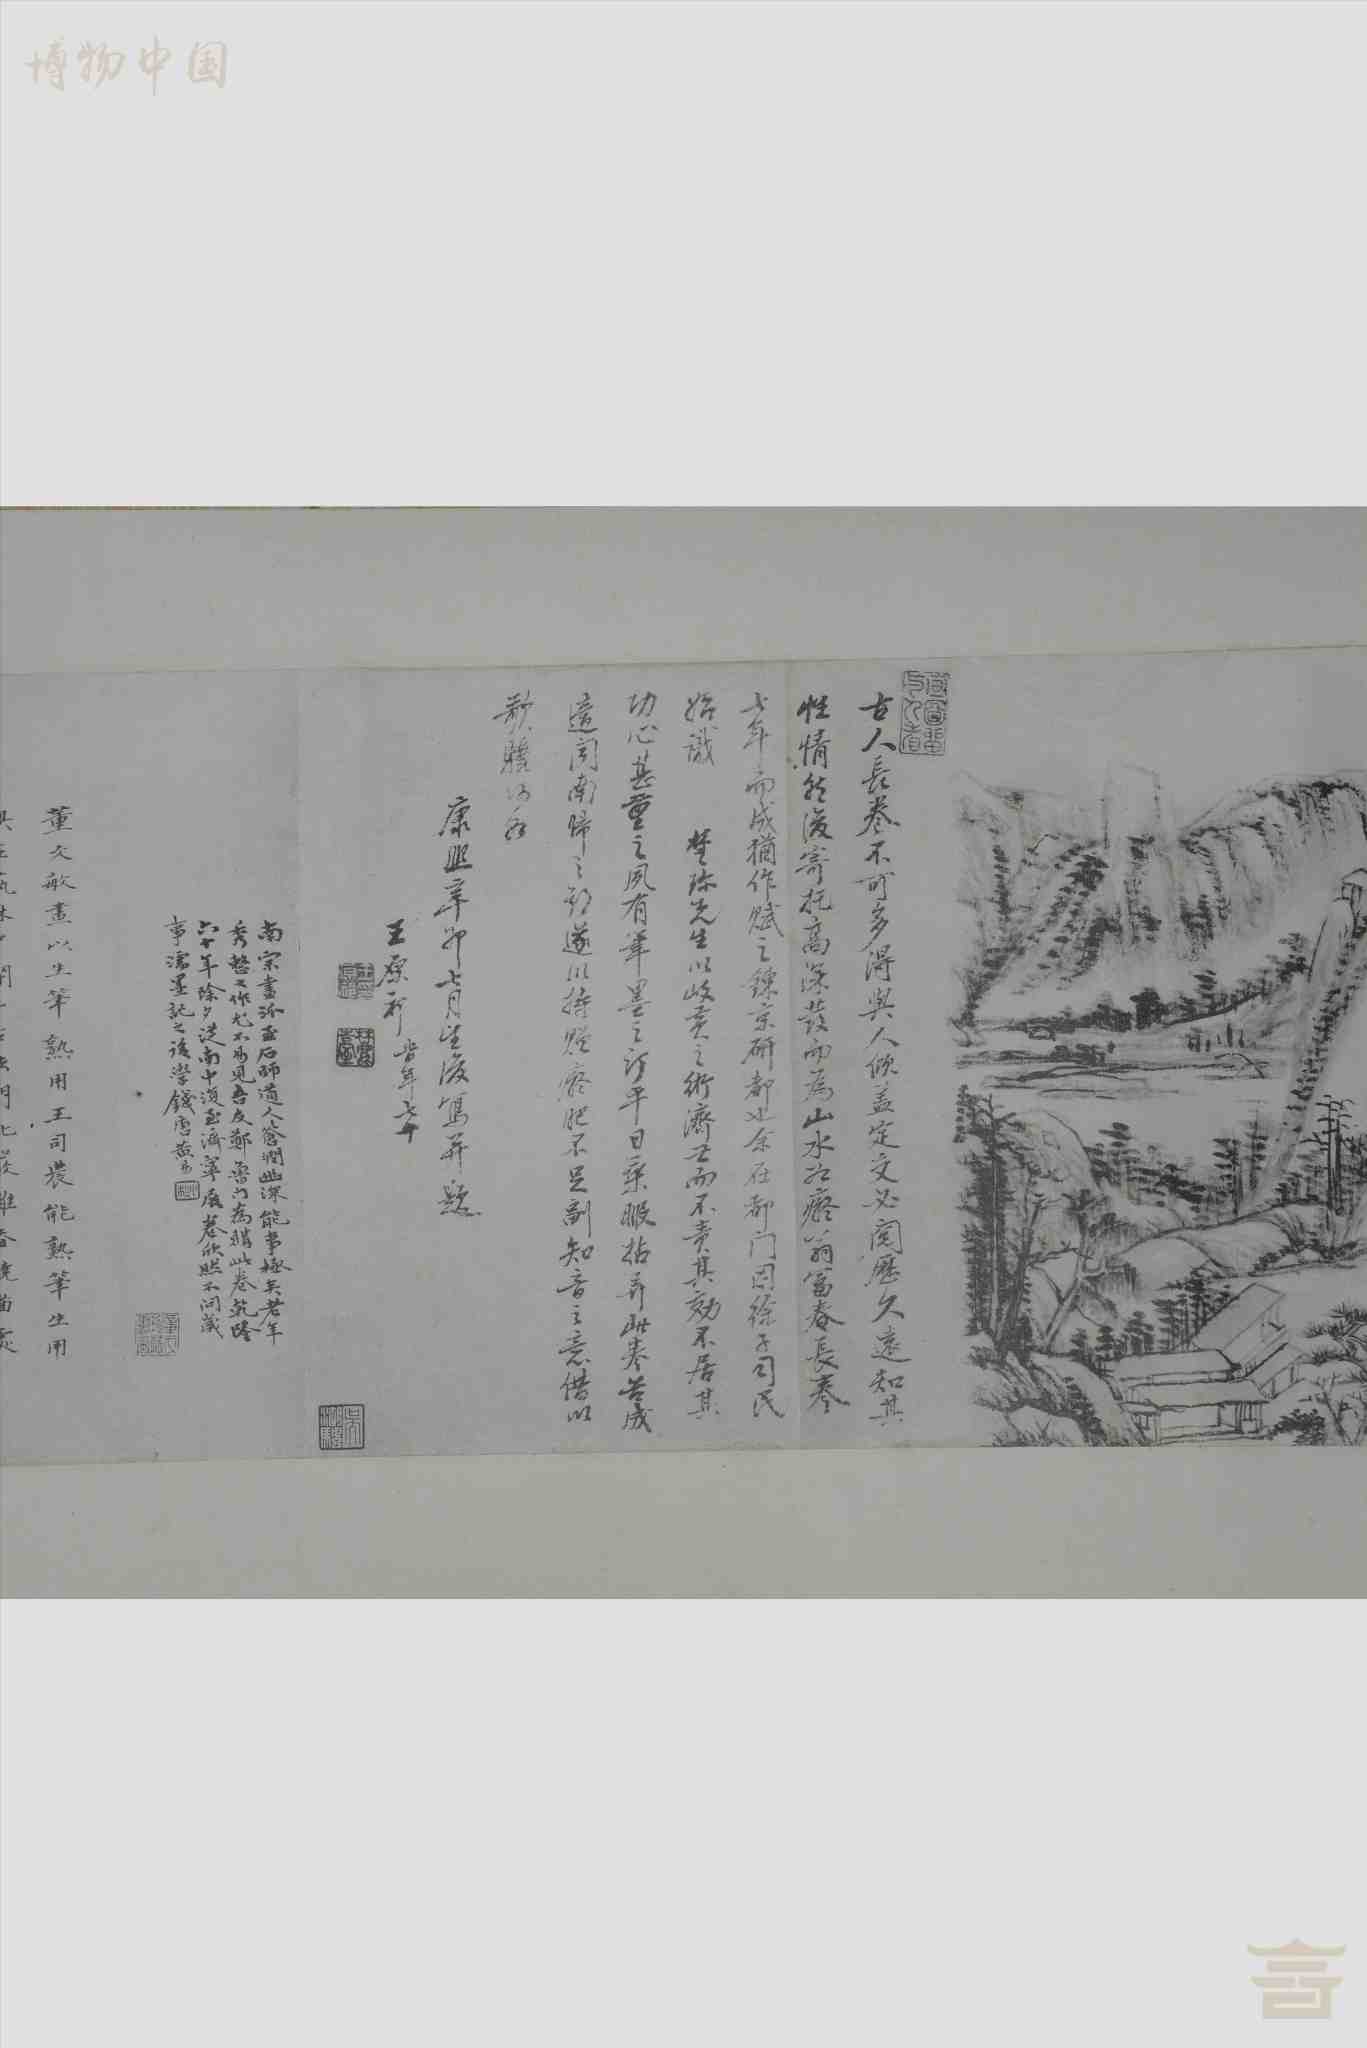 博物中国
古人長卷不可多得與人傾蓋定交必閱歷久遠知其
性情然後寄托高深發而為山水如癡翁富春長卷
七年而成猶作賦之鍊京研都也余在都门因徐子司民
始識 楚珍先生以岐黃之術濟世而不責其効不居其
功心甚重之夙有筆墨之訂平日乘暇拈弄此卷告成
適聞南歸之 遂以持贈 肥不足副知音之意借以
歎
康熙辛卯七月望後寫并題
王原祁 時年七十
南宗畫派至石師道人蒼潤幽深能事極矣老年
秀整之作尤不易見吾友鄭魯门為購此卷乾隆
六十年除夕從南中須至濟寧展卷欣然不问歲
事濡墨記之後學錢唐黃易
董文敏畫以生筆熟用王司農能熟筆生用